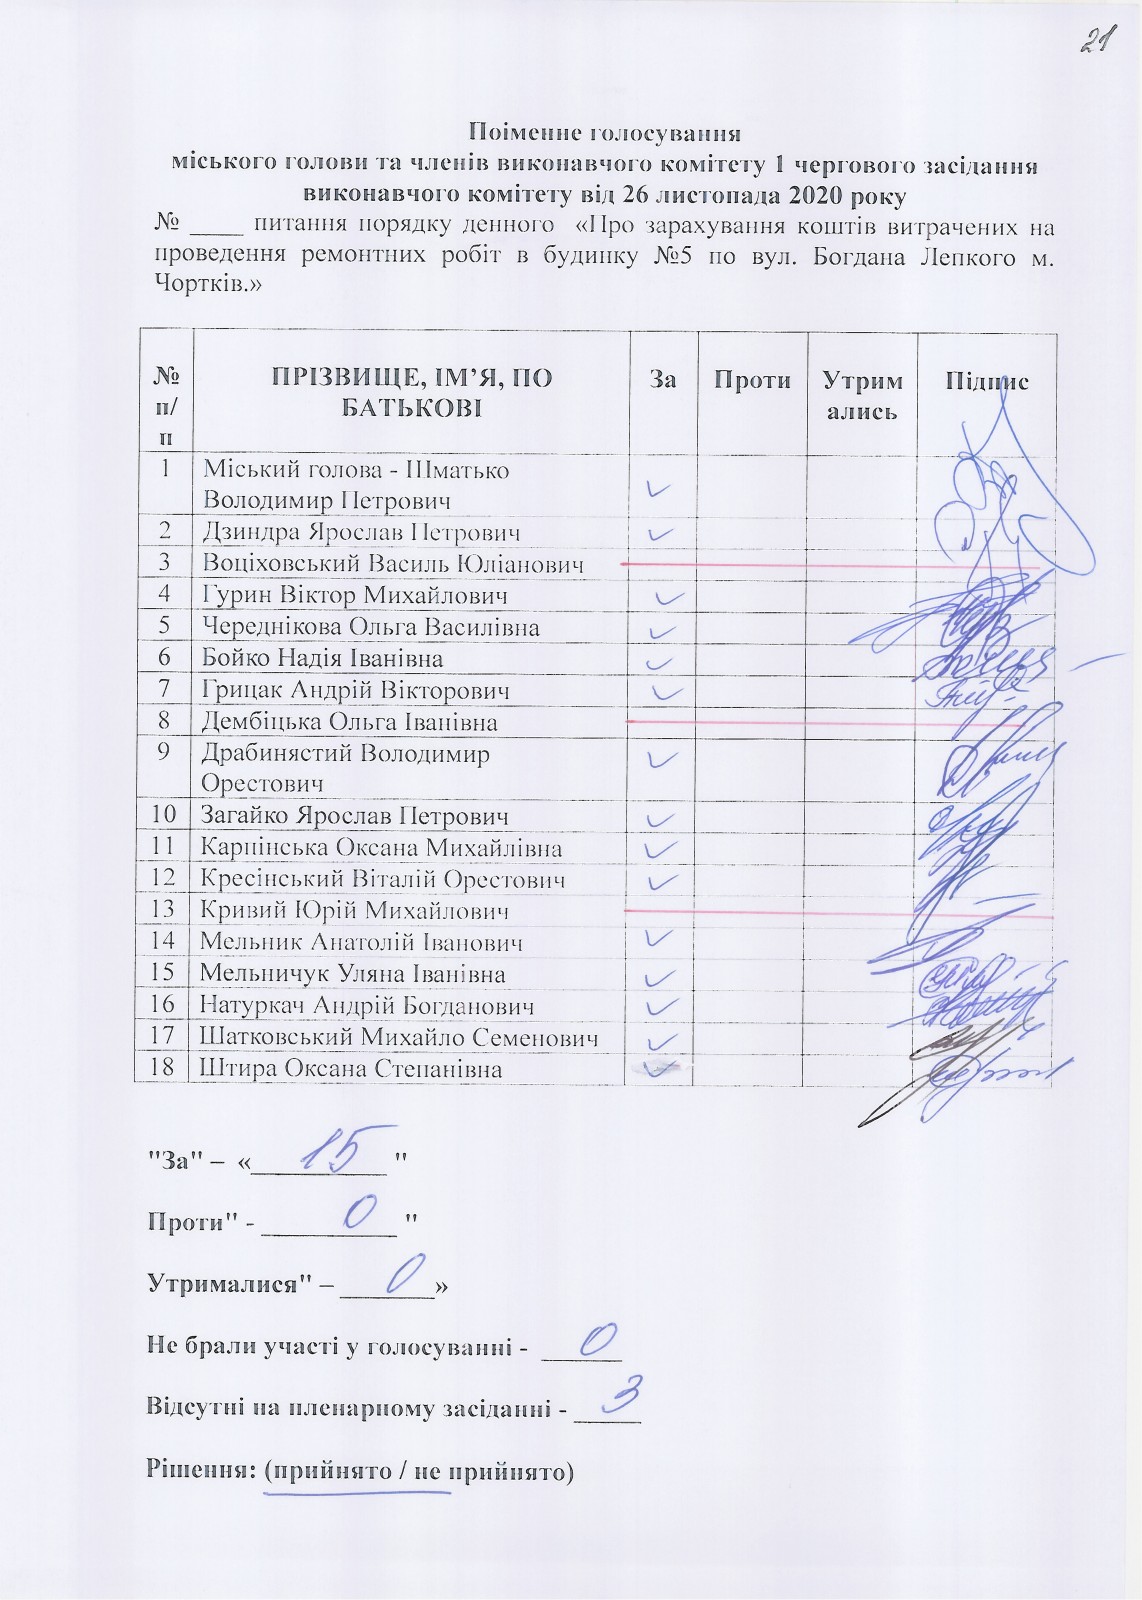 21
Поіменне голосування
міського голови та членів виконавчого комітету 1 чергового засідання
виконавчого комітету від 26 листопада 2020 року
№ ____ питання порядку денного «Про зарахування коштів витрачених на
проведення ремонтних робіт в будинку №5 по вул. Богдана Лепкого м.
Чортків.»
№ п/п ПРІЗВИЩЕ, ІМ’Я, ПО БАТЬКОВІ За Проти Утримались Підпис
1 Міський голова - Шматько
Володимир Петрович ✓
2 Дзиндра Ярослав Петрович ✓
3 Воціховський Василь Юліанович
4 Гурин Віктор Михайлович ✓
5 Череднікова Ольга Василівна ✓
6 Бойко Надія Іванівна ✓
7 Грицак Андрій Вікторович ✓
8 Дембіцька Ольга Іванівна
9 Драбинястий Володимир
Орестович ✓
10 Загайко Ярослав Петрович ✓
11 Карпінська Оксана Михайлівна ✓
12 Кресінський Віталій Орестович ✓
13 Кривий Юрій Михайлович
14 Мельник Анатолій Іванович ✓
15 Мельничук Уляна Іванівна ✓
16 Натуркач Андрій Богданович ✓
17 Шатковський Михайло Семенович ✓
18 Штира Оксана Степанівна ✓
"За" – «____15____ "
Проти" - ____0____ "
Утрималися" – ____0____»
Не брали участі у голосуванні - ____0____
Відсутні на пленарному засіданні - ____3____
Рішення: (прийнято / не прийнято)